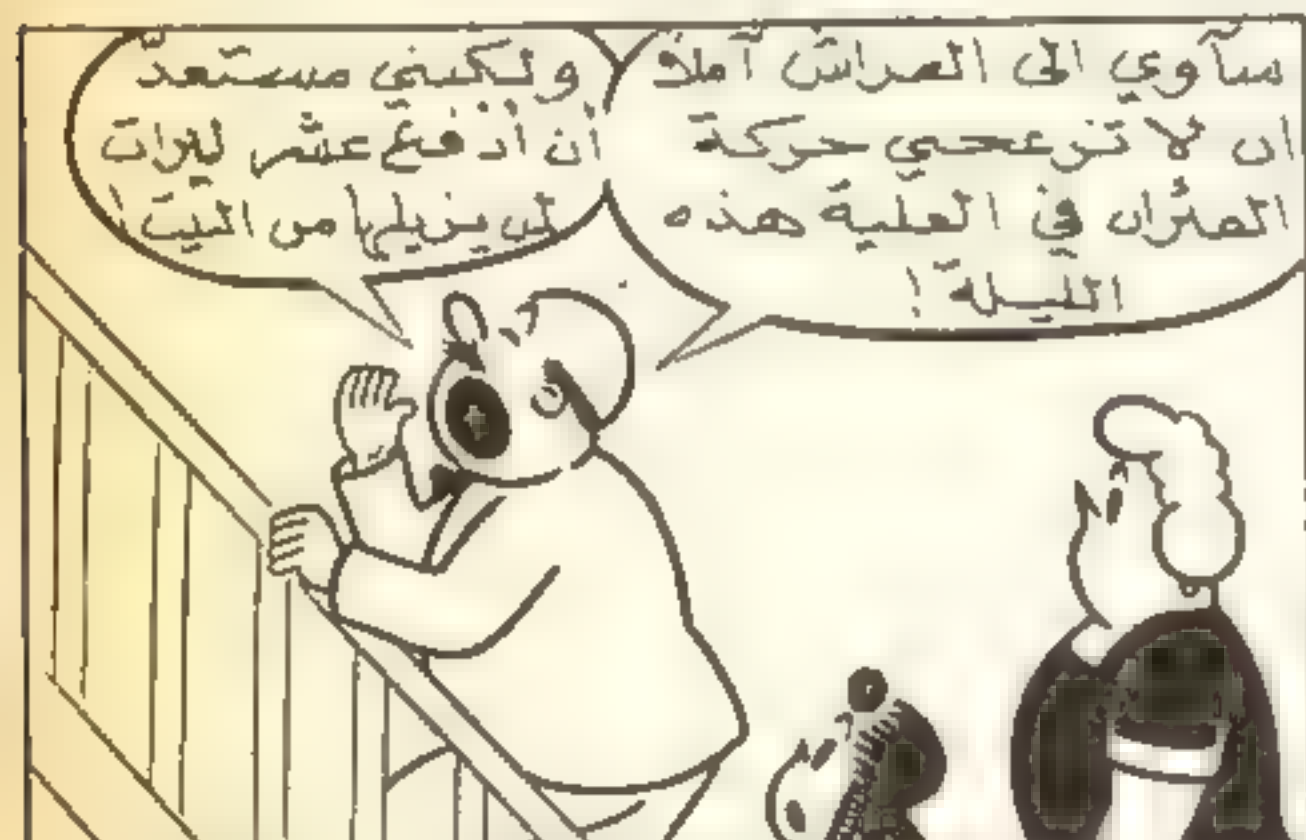 سآوي الى الفراش آملاً
ان لا تزعجني حركة
الفئران في العلية هذه
الليلة !
ولكنني مستعدّ
أن أدفع عشر ليرات
لمن يزيلها من البيت !